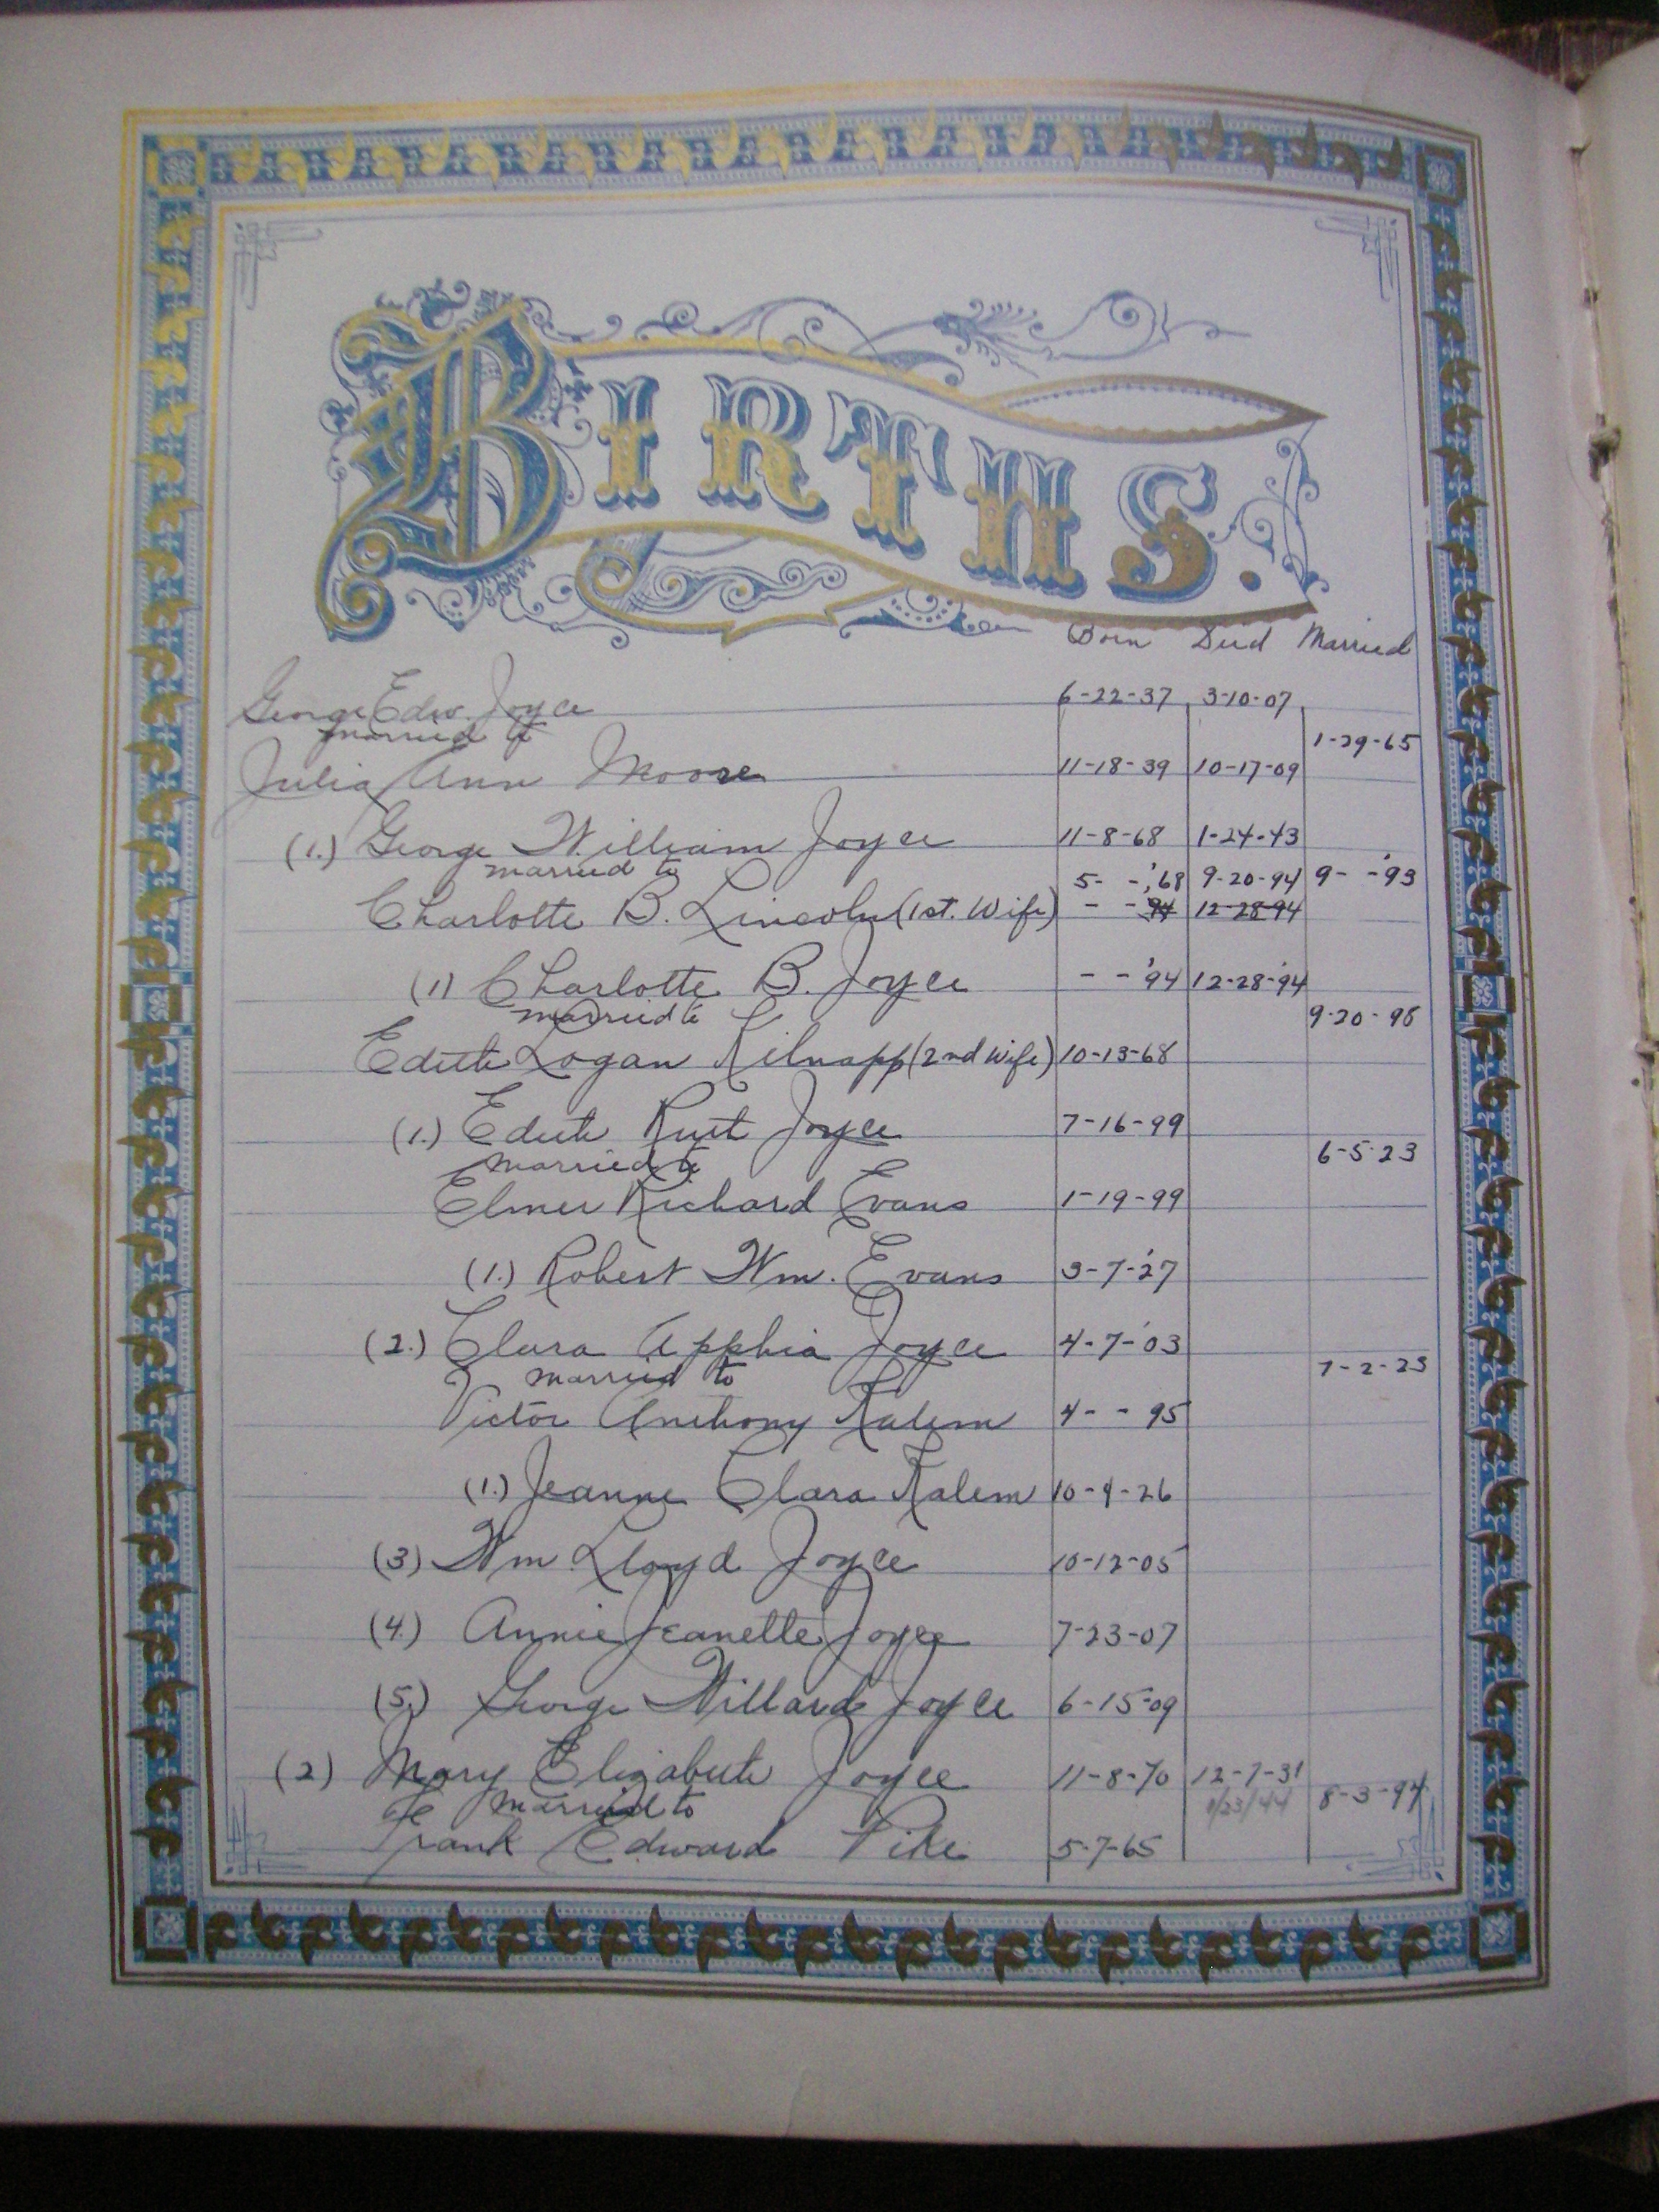 BIRTHS.
Born Died Married
George Edw. Joyce 6-22-37 3-10-07
married to 1-29-65
Julia Ann Moore 11-18-39 10-17-09
(1.) George William Joyce 11-8-68 1-24-43
married to 5- -'68 9-20-94 9- -'93
Charlotte B. Lincoln (1st. Wife) - - 94 12-28-94
(1) Charlotte B. Joyce - - '94 12-28-'94
married to 9-20-98
Edith Logan (2nd Wife) 10-13-68
(1.) Edith Rust Joyce 7-16-99
married to 6-5-23
Elmer Richard Evans 1-19-99
(1.) Robert Wm. Evans 3-7-'27
(2.) Clara Apphia Joyce 4-7-'03
married to 7-2-23
Victor Anthony Kalem 4- - 95
(1.) Jeanne Clara Kalem 10-9-26
(3) Wm. Lloyd Joyce 10-12-05
(4.) Annie Jeanette Joyce 7-23-07
(5.) George Willard Joyce 6-15-09
(2) Mary Elizabeth Joyce 11-8-70 12-7-31
married to 1/23/44 8-3-94
Frank Edward Pike 5-7-65